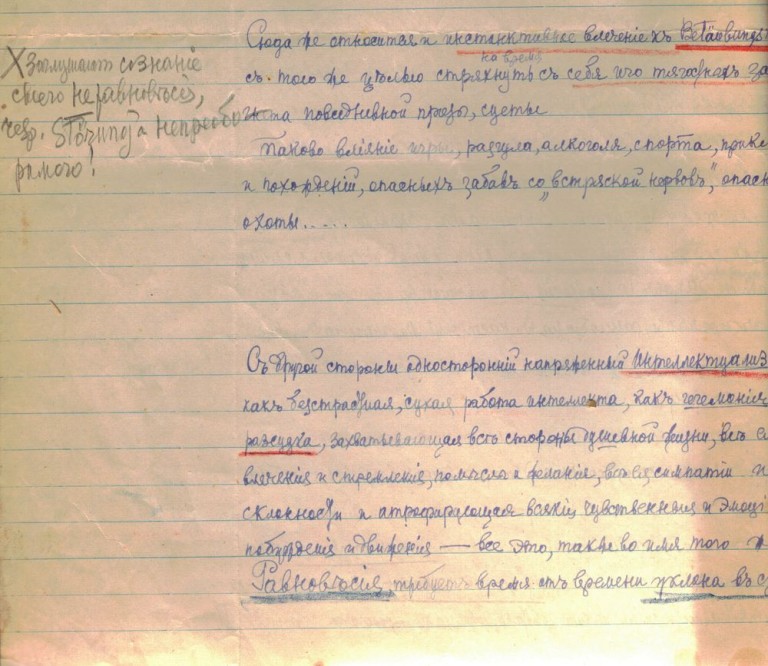 X Заглушаютъ сознаніе
своего неравновѣсія,
чер. Störung'а непреобо
римого!
Сюда же относится и инстинктивное влеченіе къ Betäubung
на время
съ того же цѣлью стряхнуть съ себя иго тягостныхъ за
гнета повседневной прозы, суеты
Таково вліяніе игры, разгула, алкоголя, спорта, прикл
и похожденій, опасныхъ забавъ со „встряской нервовъ", опасн
охоты.....
Съ другой стороны односторонній напряженный Интеллектуализ
какъ безстрастная, сухая работа интеллекта, какъ гегемонія
разсудка, захватывающая всѣ стороны душевной жизни, всѣ е
влеченія и стремленія, помыслы и желанія, всѣ ея симпатіи и
склонности и атрофирующая всякія чувственныя и эмоці
побужденія и движенія — все это, также во имя того ж
Равновѣсія требуетъ время отъ времени уклона въ с